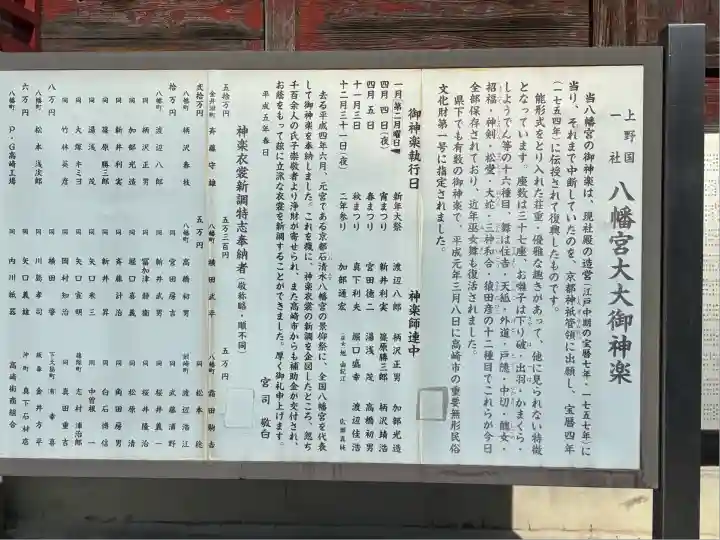 上野国一社 八幡宮大大御神楽
当八幡宮の御神楽は、現社殿の造営(江戸中期の宝暦七年・一七五七年)に
当り、それまで中断していたのを、京都神祇管領に出願し、宝暦四年
(一七五四年)に伝授されて復興したものです。
能形式をとり入れた荘重・優雅な趣きがあって、他に見られない特徴
となっています。座数は三十七座、お囃子は下り破・出羽・かまくら・
しようでん等の十六種目、舞は住吉・天狐・外道・戸隠・中切・醜女・
招福・神剣・松愛・大蛇・三神和合・猿田彦の十二種目でこれらが今日
全部保存されており、近年巫女舞も復活されました。
県下でも有数の御神楽で、平成元年三月八日に高崎市の重要無形民俗
文化財第一号に指定されました。
御神楽執行日
一月(第二月曜日) 新年大祭
四月四日(夜) 宵まつり
四月五日 春まつり
十一月三日 秋まつり
十二月三十一日(夜) 二年参り
神楽師連中
渡辺八郎 柄沢正男 加部光造
新井利実 篠原勝三郎 柄沢靖浩
宮田徳二 湯浅茂 高橋初男
真下利夫 堀口盛幸 渡辺佳浩
加部通宏
去る平成四年六月、元宮である京都石清水八幡宮の景仰祭に、全国八幡宮を代表
して御神楽を奉納しました。これを機に、神楽衣裳の新調を企図したところ、忽ち
千百余人の氏子崇敬者より浄財が寄せられ、また高崎市からも補助金が交付され、
お蔭をもって茲に立派な衣裳を新調することができました。厚く御礼申上げます。
平成五年春日 宮司 敬白
神楽衣裳新調特志奉納者(敬称略・順不同)
五拾万円
金井淵町 斉藤守雄
弐拾万円
八幡町 柄沢春枝
拾万円
八幡町 渡辺八郎
同 柄沢正男
同 加部光造
同 新井利実
同 篠原勝三郎
同 湯浅茂
同 大塚キミヨ
同 竹林英彦
八万円
八幡町 松本浅次郎
六万円
八幡町 P・G高崎工場
五万三百円
八幡町 横田武平
五万円
八幡町 高橋初男
同 宮田房吉
同 新井武男
同 冨加津静衛
同 堀口喜義
同 斉藤計治
同 新井昇
同 矢口米三
同 矢口宣明
同 岡村知治
同 横田肇
同 川島孝司
同 矢口義雄
同 内川紙器
五万円
八幡町 霜田駒吉
同 松本稔
剣崎町 渡辺浩江
同 武藤浦野
同 桜井義一
同 桜井隆治
同 松原清
同 角田房男
同 白石博信
同 中曽根一
藤塚町 志村源治郎
同 真田重吉
下大島町 (有)幸喜
板鼻 金井方平
沖町 真下石材店
高崎衛商組合